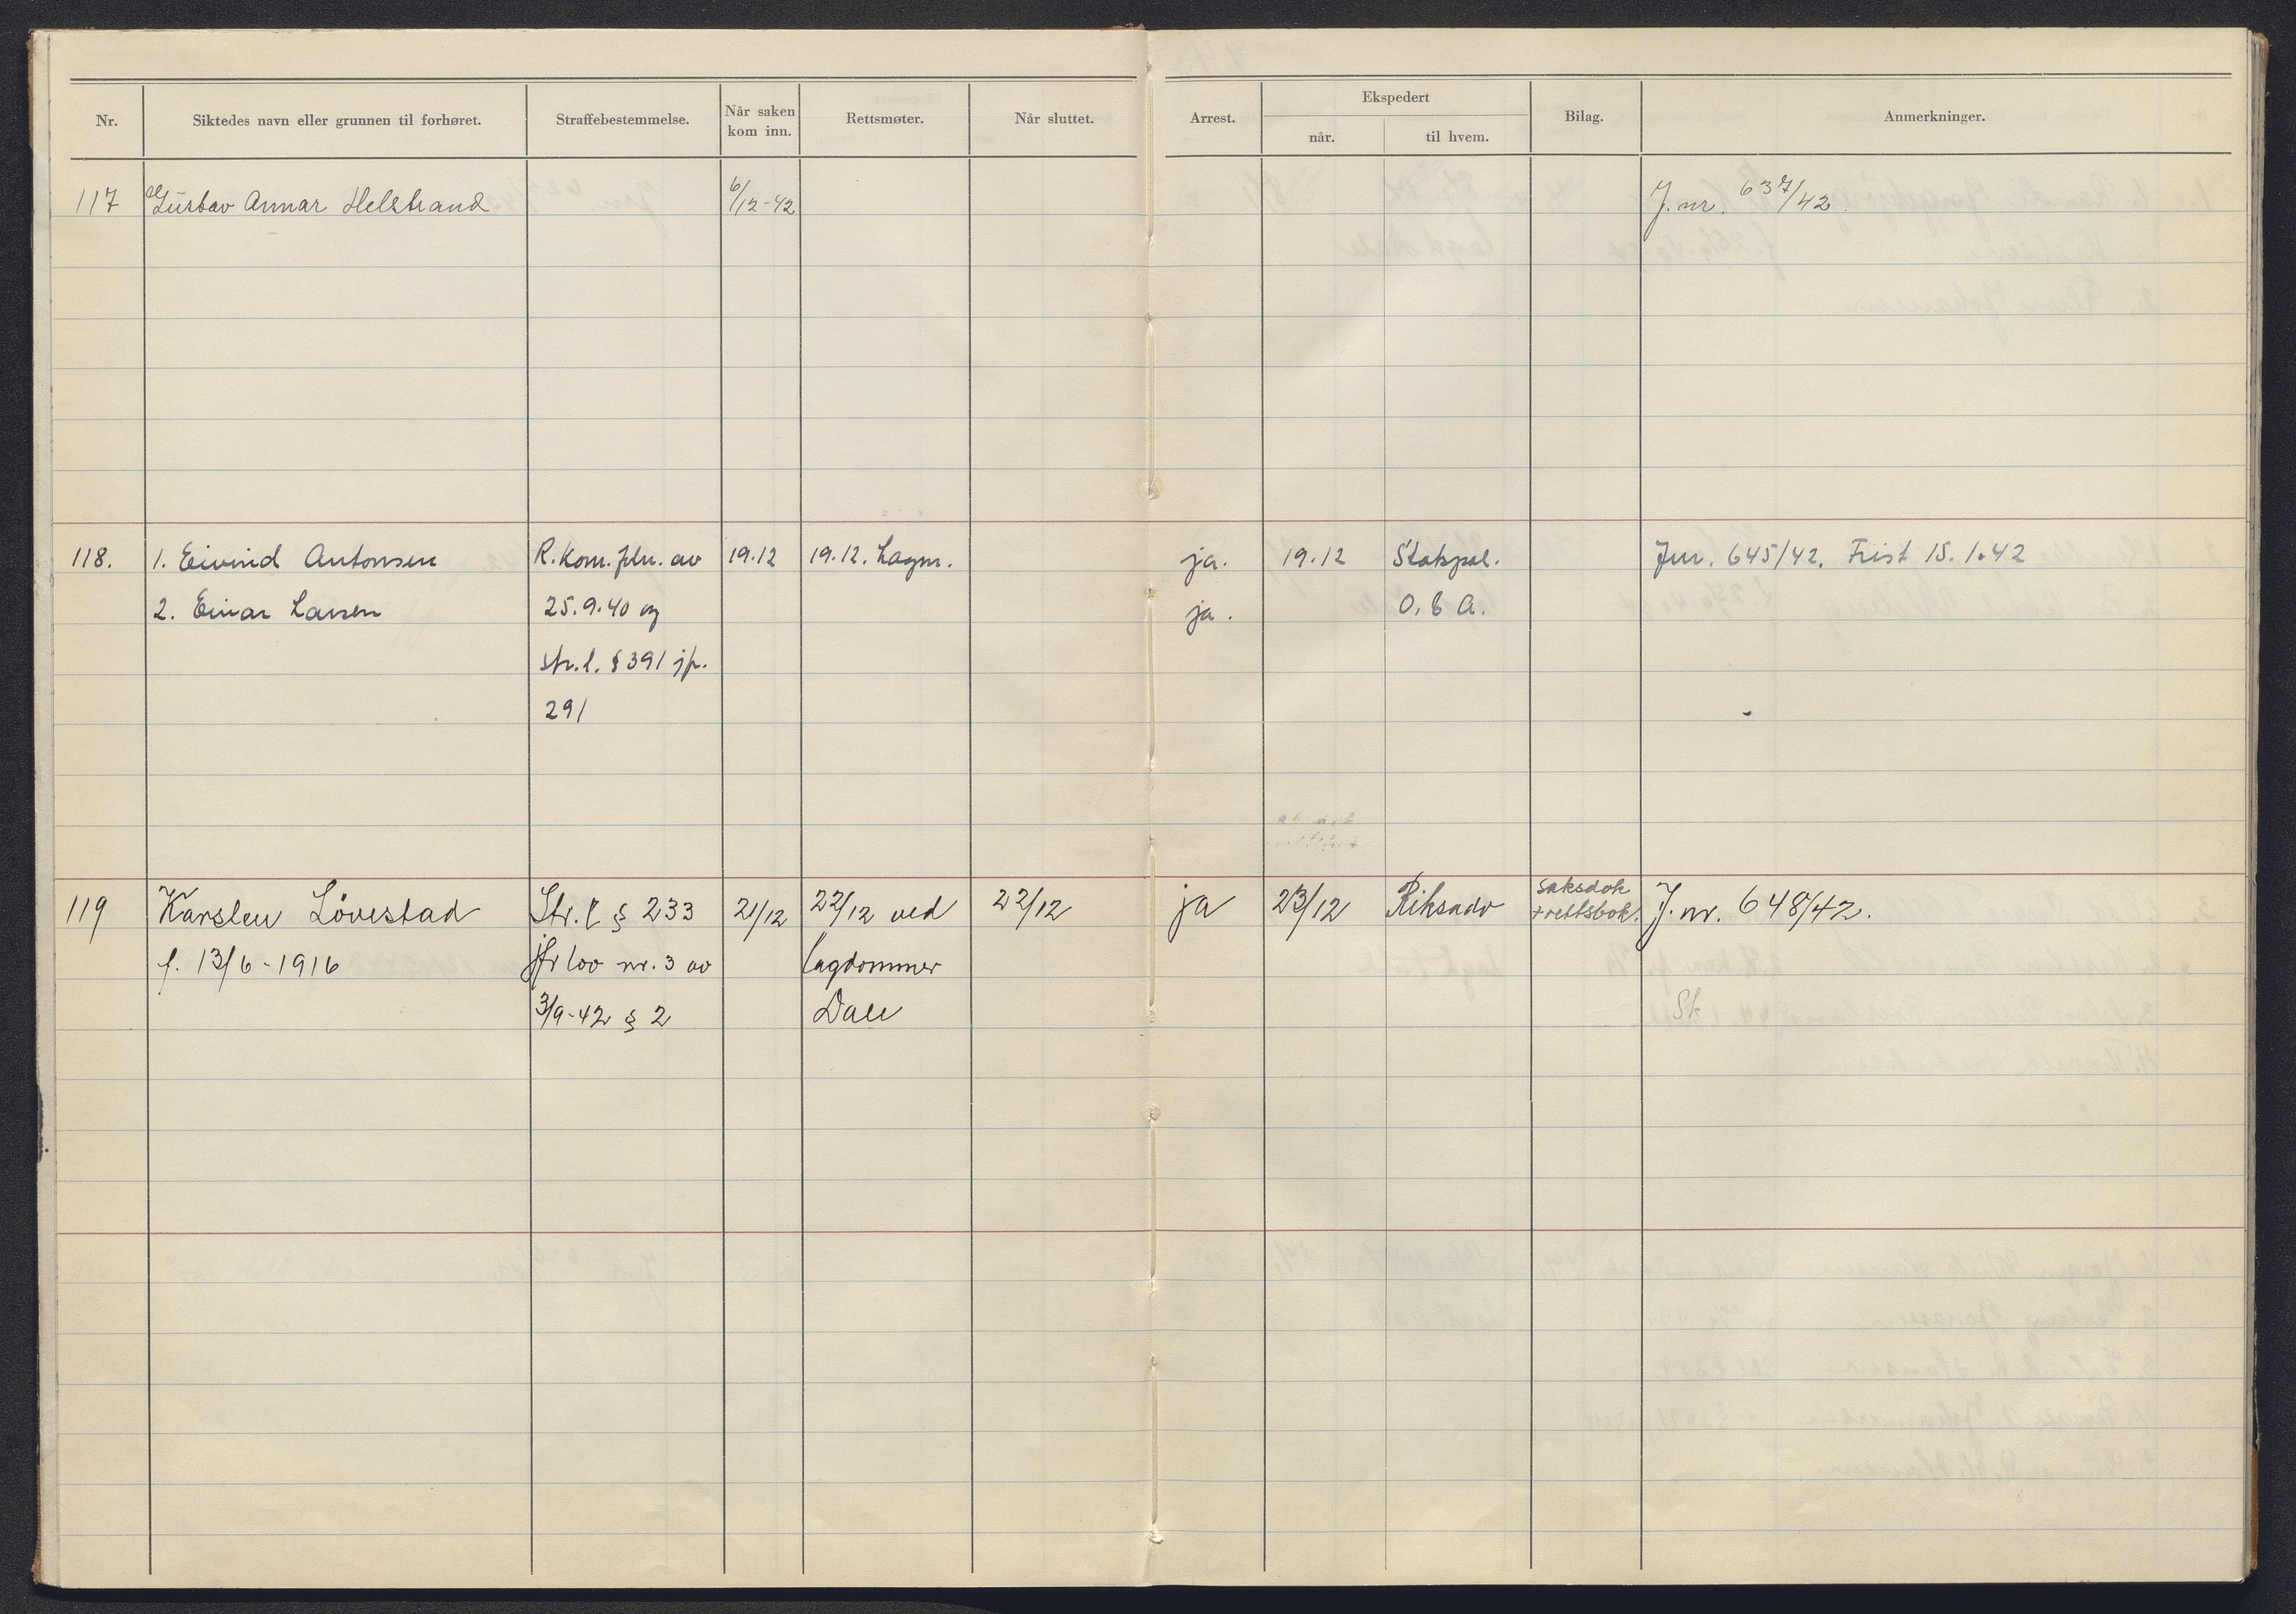 Nr. Siktedes navn eller grunnen til forhøret. Straffebestemmelse. Når saken kom inn. Rettsmøter. Når sluttet. Arrest. Ekspedert når. til hvem. Bilag. Anmerkninger.
117 Gustav Annar Helstrand 6/12-42 J. nr. 637/42.
118. 1. Eivind Antonsen R. Kom. ftn. av 19.12 19.12. Lagm. ja. 19.12 Statspol. Jnr. 645/42. Frist 15.1.42
2. Einar Larsen 25.9.40 og ja. O. b A.
str.l. § 391 jfr.
291
119 Karsten Lövestad Str. l § 233 21/12 22/12 ved 22/12 ja 23/12 Riksadv saksdok + rettsbok. J. nr. 648/42.
f. 13/6-1916 jfr lov nr. 3 av lagdommer
3/9-42 § 2 Dale St